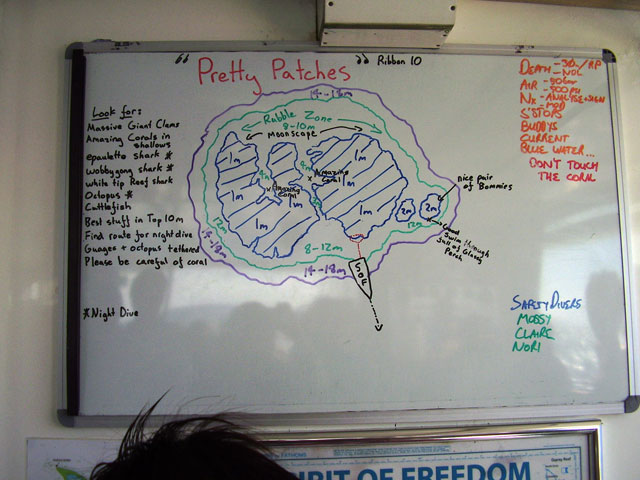 " Pretty Patches " Ribbon 10
Look for:
Massive Giant Clams
Amazing Corals in
shallows
epaulette shark *
Wobbygong shark *
White tip Reef shark
Octopus *
Cuttlefish
Best stuff in Top 10m
Find route for night dive
Guages + octopus tethered
Please be careful of coral
*Night Dive
14-18m
Rubble Zone
8-10m
Moonscape
1m
1m
1m
1m
4m
Amazing
Coral
x
x Amazing
Coral
1m
1m
1m
1m
2m
2m
12m
nice pair
of Bommies
Good
Swim through
full of Glassy
Perch
12m
14-18m
8-12m
14-18m
SOF
DEATH - 30m/RP
- NDL
AIR - 50bar
- 500PSI
Nx - ANALYSE + SIGN
- MOD
S'STOPS
BUDDYS
CURRENT
BLUE WATER...
DON'T TOUCH
THE CORAL
SAFETY DIVERS
MOSSY
CLAIRE
NORI
FATHOMS
SPIRIT OF FREEDOM